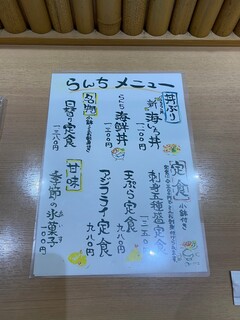 らんち メニュー
丼ぶり
海いろ丼
一二〇〇円
らんち
海鮮丼
一二〇〇円
名物
日替り定食
一三八〇円
定食
小鉢付き
刺身五種盛定食
天ぷら定食
九八〇円
アジフライ定食
九八〇円
甘味
季節の氷菓子
一〇〇円